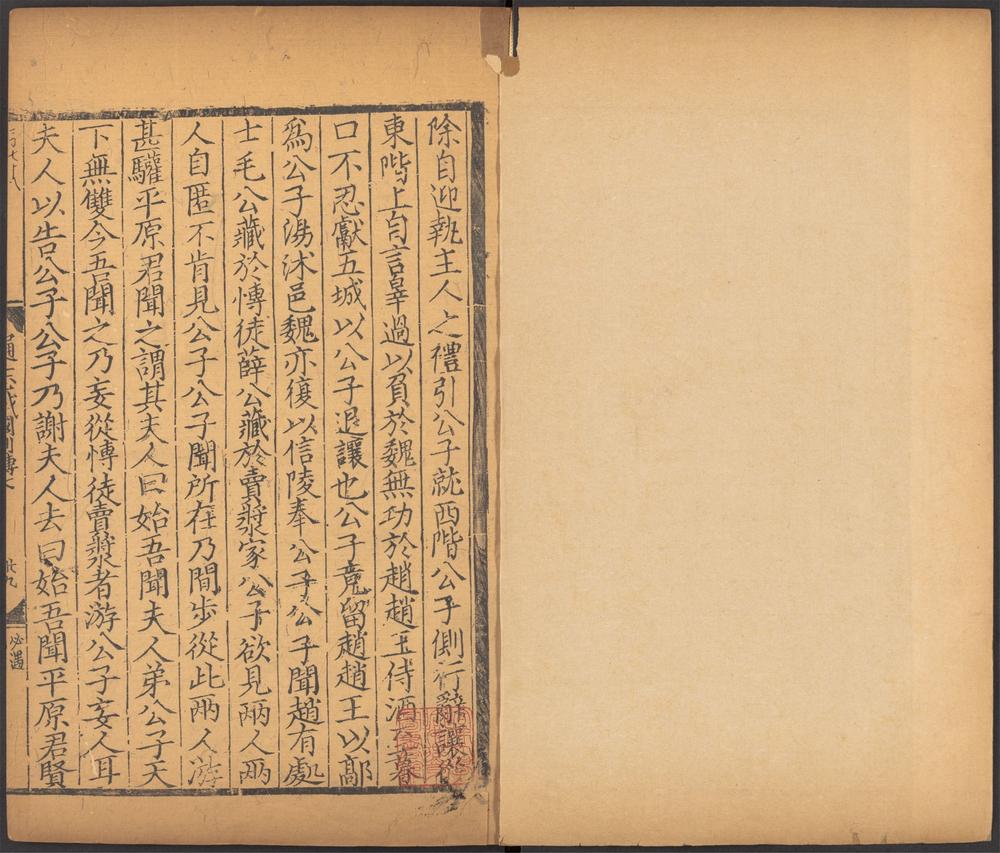 除自迎執主人之禮引公子就西階公子側行辭讓從
東階上自言辠過以負於魏無功於趙趙王侍酒至暮
口不忍獻五城以公子退讓也公子竟留趙趙王以鄗
爲公子湯沭邑魏亦復以信陵奉公子公子聞趙有處
士毛公藏於慱徒薛公藏於賣漿家公子欲見兩人兩
人自匿不肯見公子公子聞所在乃間步從此兩人游
甚驩平原君聞之謂其夫人曰始吾聞夫人弟公子天
下無雙今吾聞之乃妄從慱徒賣漿者游公子妄人耳
夫人以告公子公子乃謝夫人去曰始吾聞平原君賢
通志戰國列傳七
廿九
必遇